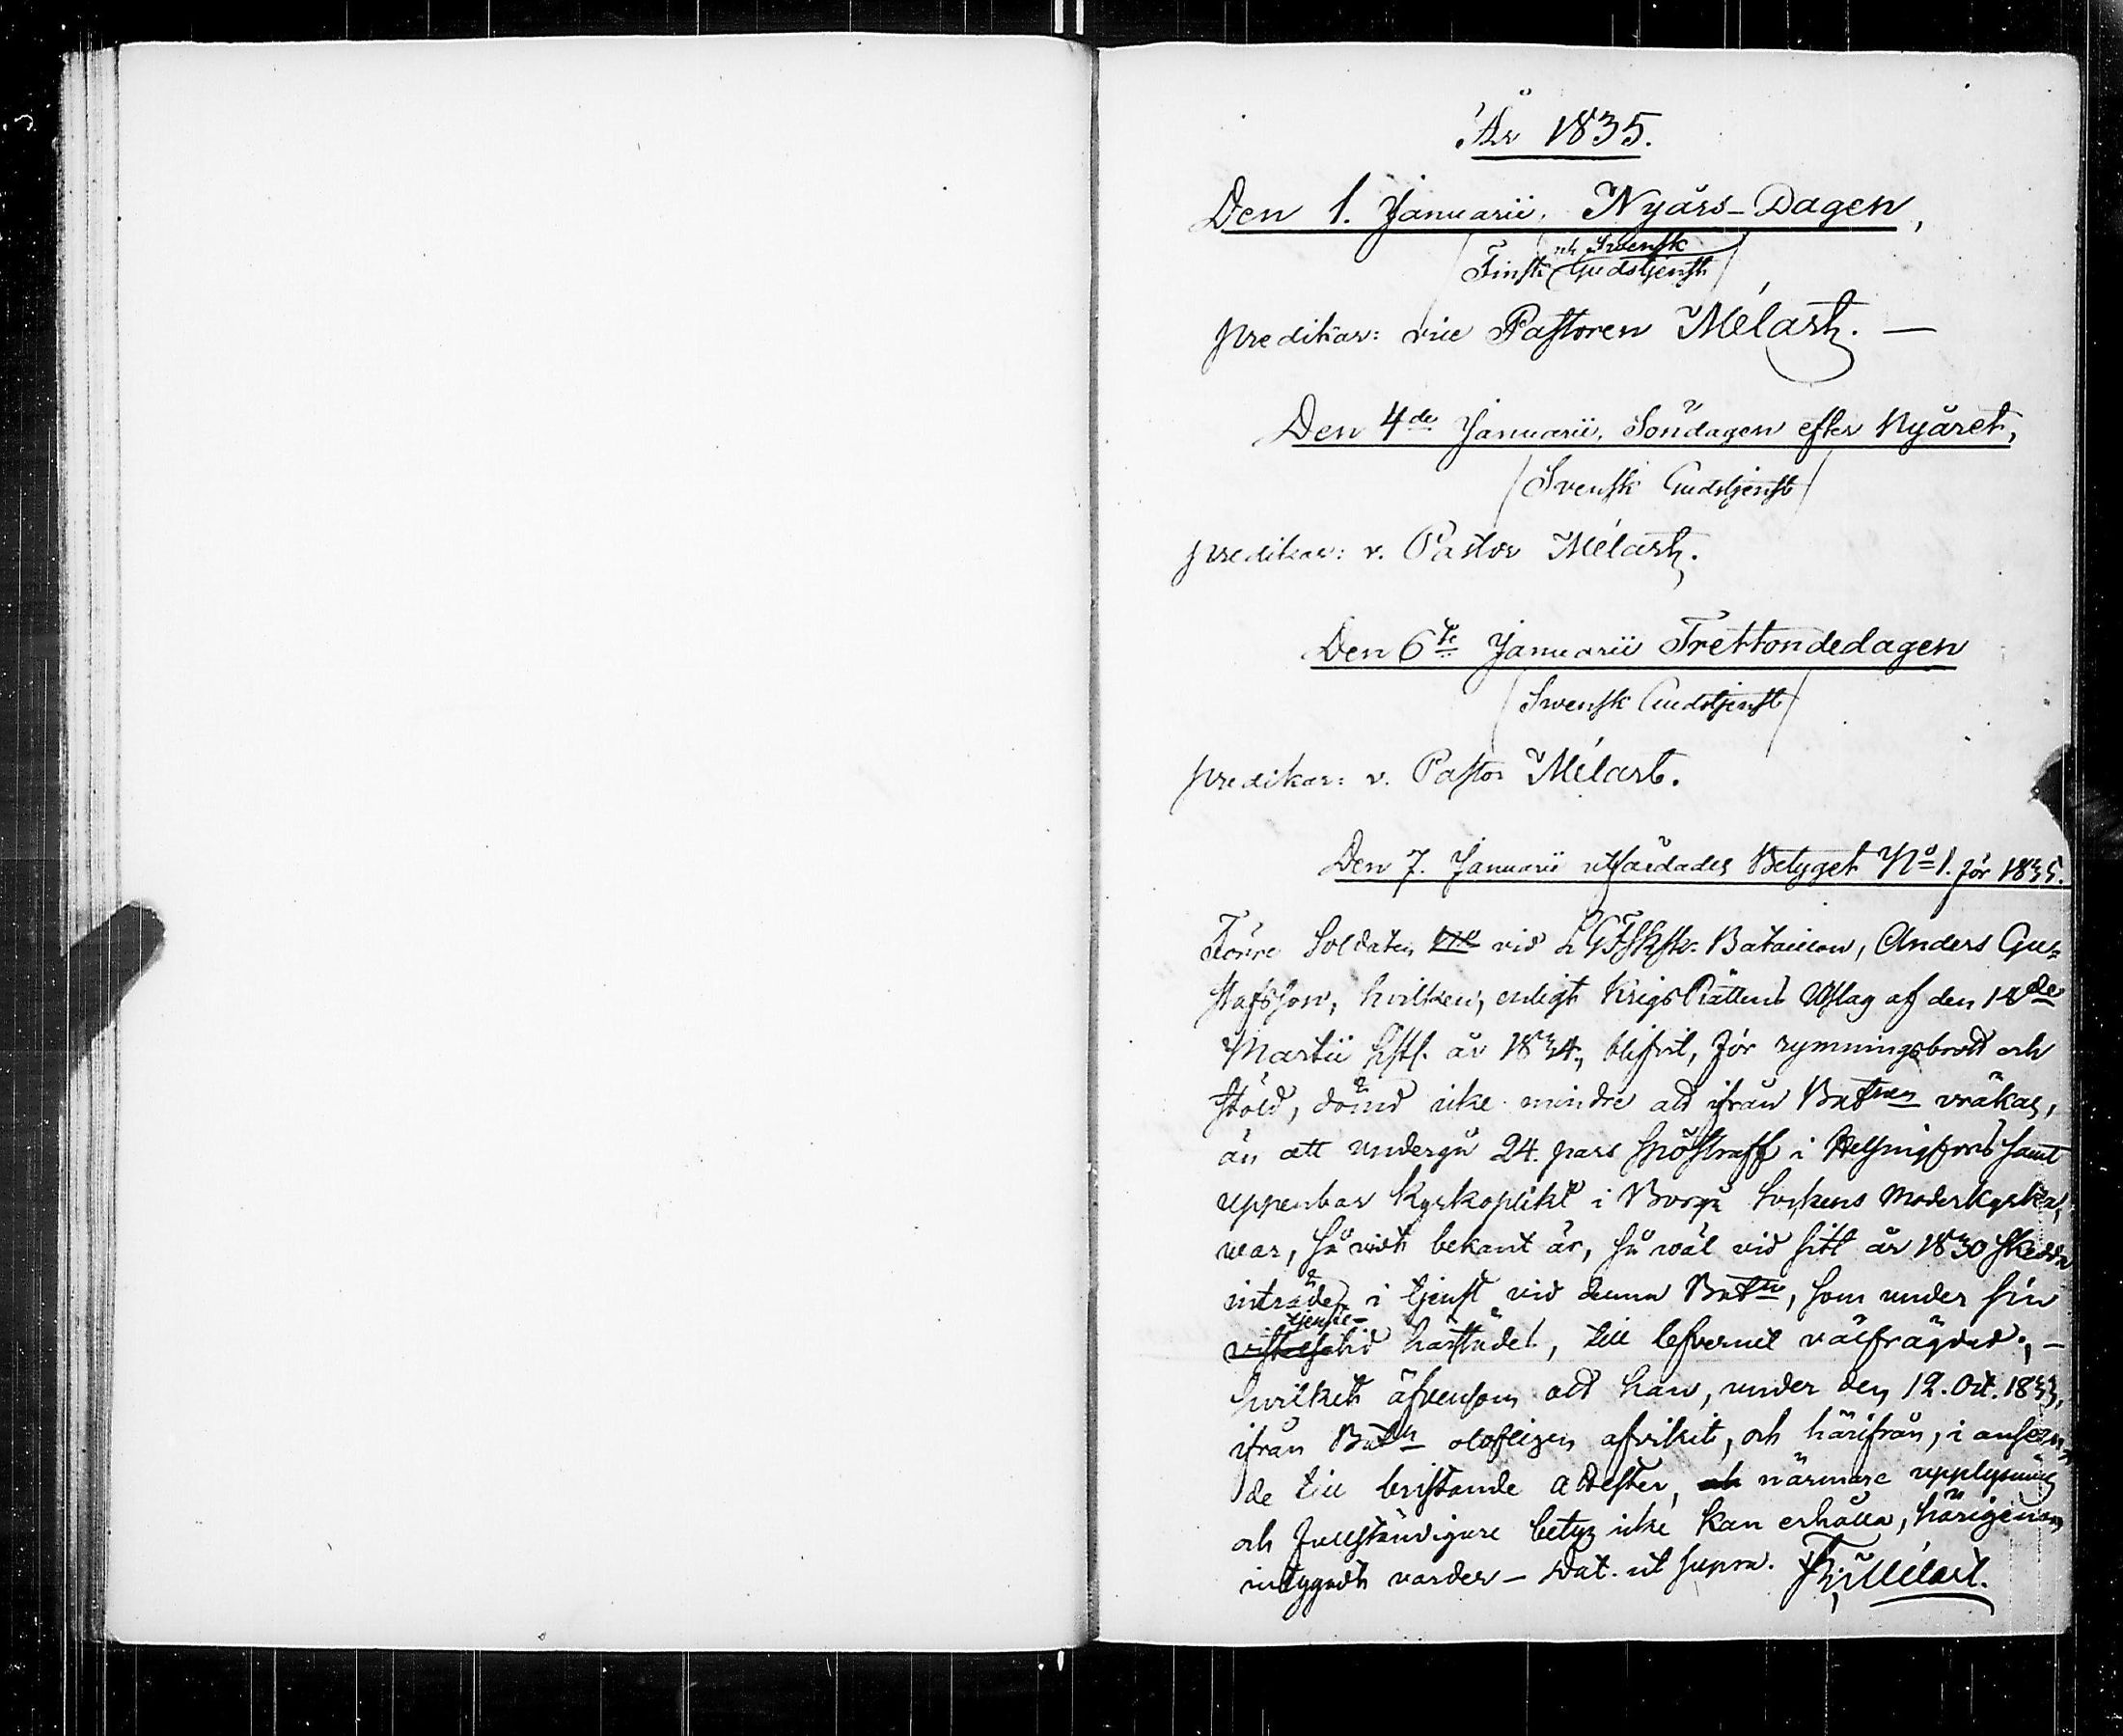 År 1835.
Den 1. Januarii. Nyårs-Dagen,
och Svensk
Finsk Gudstjenst
predikar: vice Pastoren Mélart. —
Den 4de Januarii. Söndagen efter Nyåret,
Svensk Gudstjenst
predikar: v. Pastor Mélart.
Den 6te Januarii Trettondedagen
Svensk Gudstjenst
predikar: v. Pastor Mélart.
Den 7. Januarii utfärdades Betyget No 1. för 1835.
Förre Soldaten vid Bataillon, Anders Gu=
stafsson, hvilken, enligt KrigsRättens Utslag af den 18de
Martii sistl. år 1834, blifvit, för rymningsbrott och
stöld, dömd icke mindre att ifrån Batnen vräkas,
än att undergå 24. pars spöstraff i Helsingfors samt
uppenbar kyrkoplikt i Borgå Sockens Moderkyrka,
war, så vidt bekant är, så wäl vid sitt år 1830 skedda
inträde i tjenst vid denna Batn, som under sin
tjenste-
vistelsetid härstädes, till lefvernet välfrägdad; —
hvilket äfvensom att han, under den 12. Oct. 1833,
ifrån Batn olofligen afvikit, och härifrån, i anseen-
de till bristande attester, och närmare upplysning
och fullständigare betyg icke kan erhålla, härigenom
intygadt varder — Dat. ut supra. Mélart.